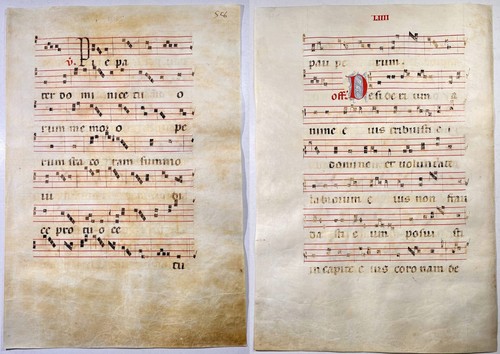 ℣. P ie pa
ter do mi nice tu o
rum memor o pe
rum sta co ram summo
iu di
ce pro tu o ce
tu
LIIII
pau pe rum.
off. D e si de ri um a
nime e ius tribuisti e i
domine et voluntate
labiorum e ius non frau
da sti e um posui sti
in capite e ius coro nam de